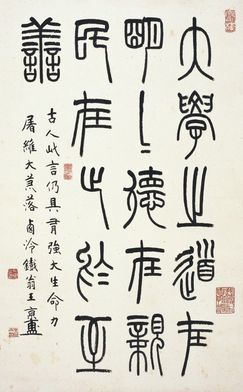 大學之道在
明〻德在親
民在止於至
善
古人此言仍具有強大生命力
屠維大荒落卥泠鐵翁王京盙